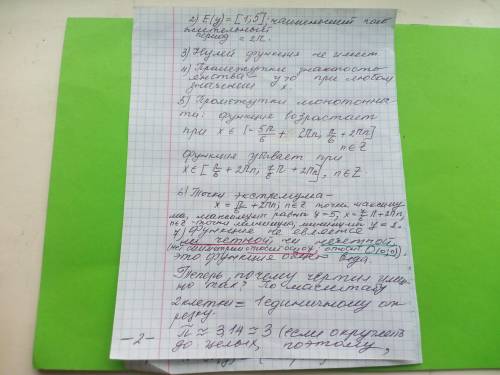 2) E(y) = [1;5]; наименьший поло
жительный
период = 2π.
3) Нулей функция не имеет
4) Промежутки знакопосто
янства – y>0 при любом
значении x.
5) Промежутки монотоннос-
ти: функция возрастает
при x ∈ [-5π/6 + 2πn, π/6 + 2πn]
n∈Z
функция убывает при
x ∈ [π/6 + 2πn, 7π/6 + 2πn], n∈Z
6) Точки экстремума –
x = π/6 + 2πn, n∈Z точки максиму
ма, максимум равен y=5, x = 7/6 π + 2πn,
n∈Z – точки минимума, минимум y =
7) Функция не является
ни четной ни нечетной
(нет симметрии относит. оси oy, относит. O(0;0))
это функция общего вида.
Теперь, почему чертил имен
но так? По масштабу
2 клетки = 1 единичному от
резку.
π ≈ 3,14 ≈ 3 (если округлить
до целых, поэтому,
– 2 –